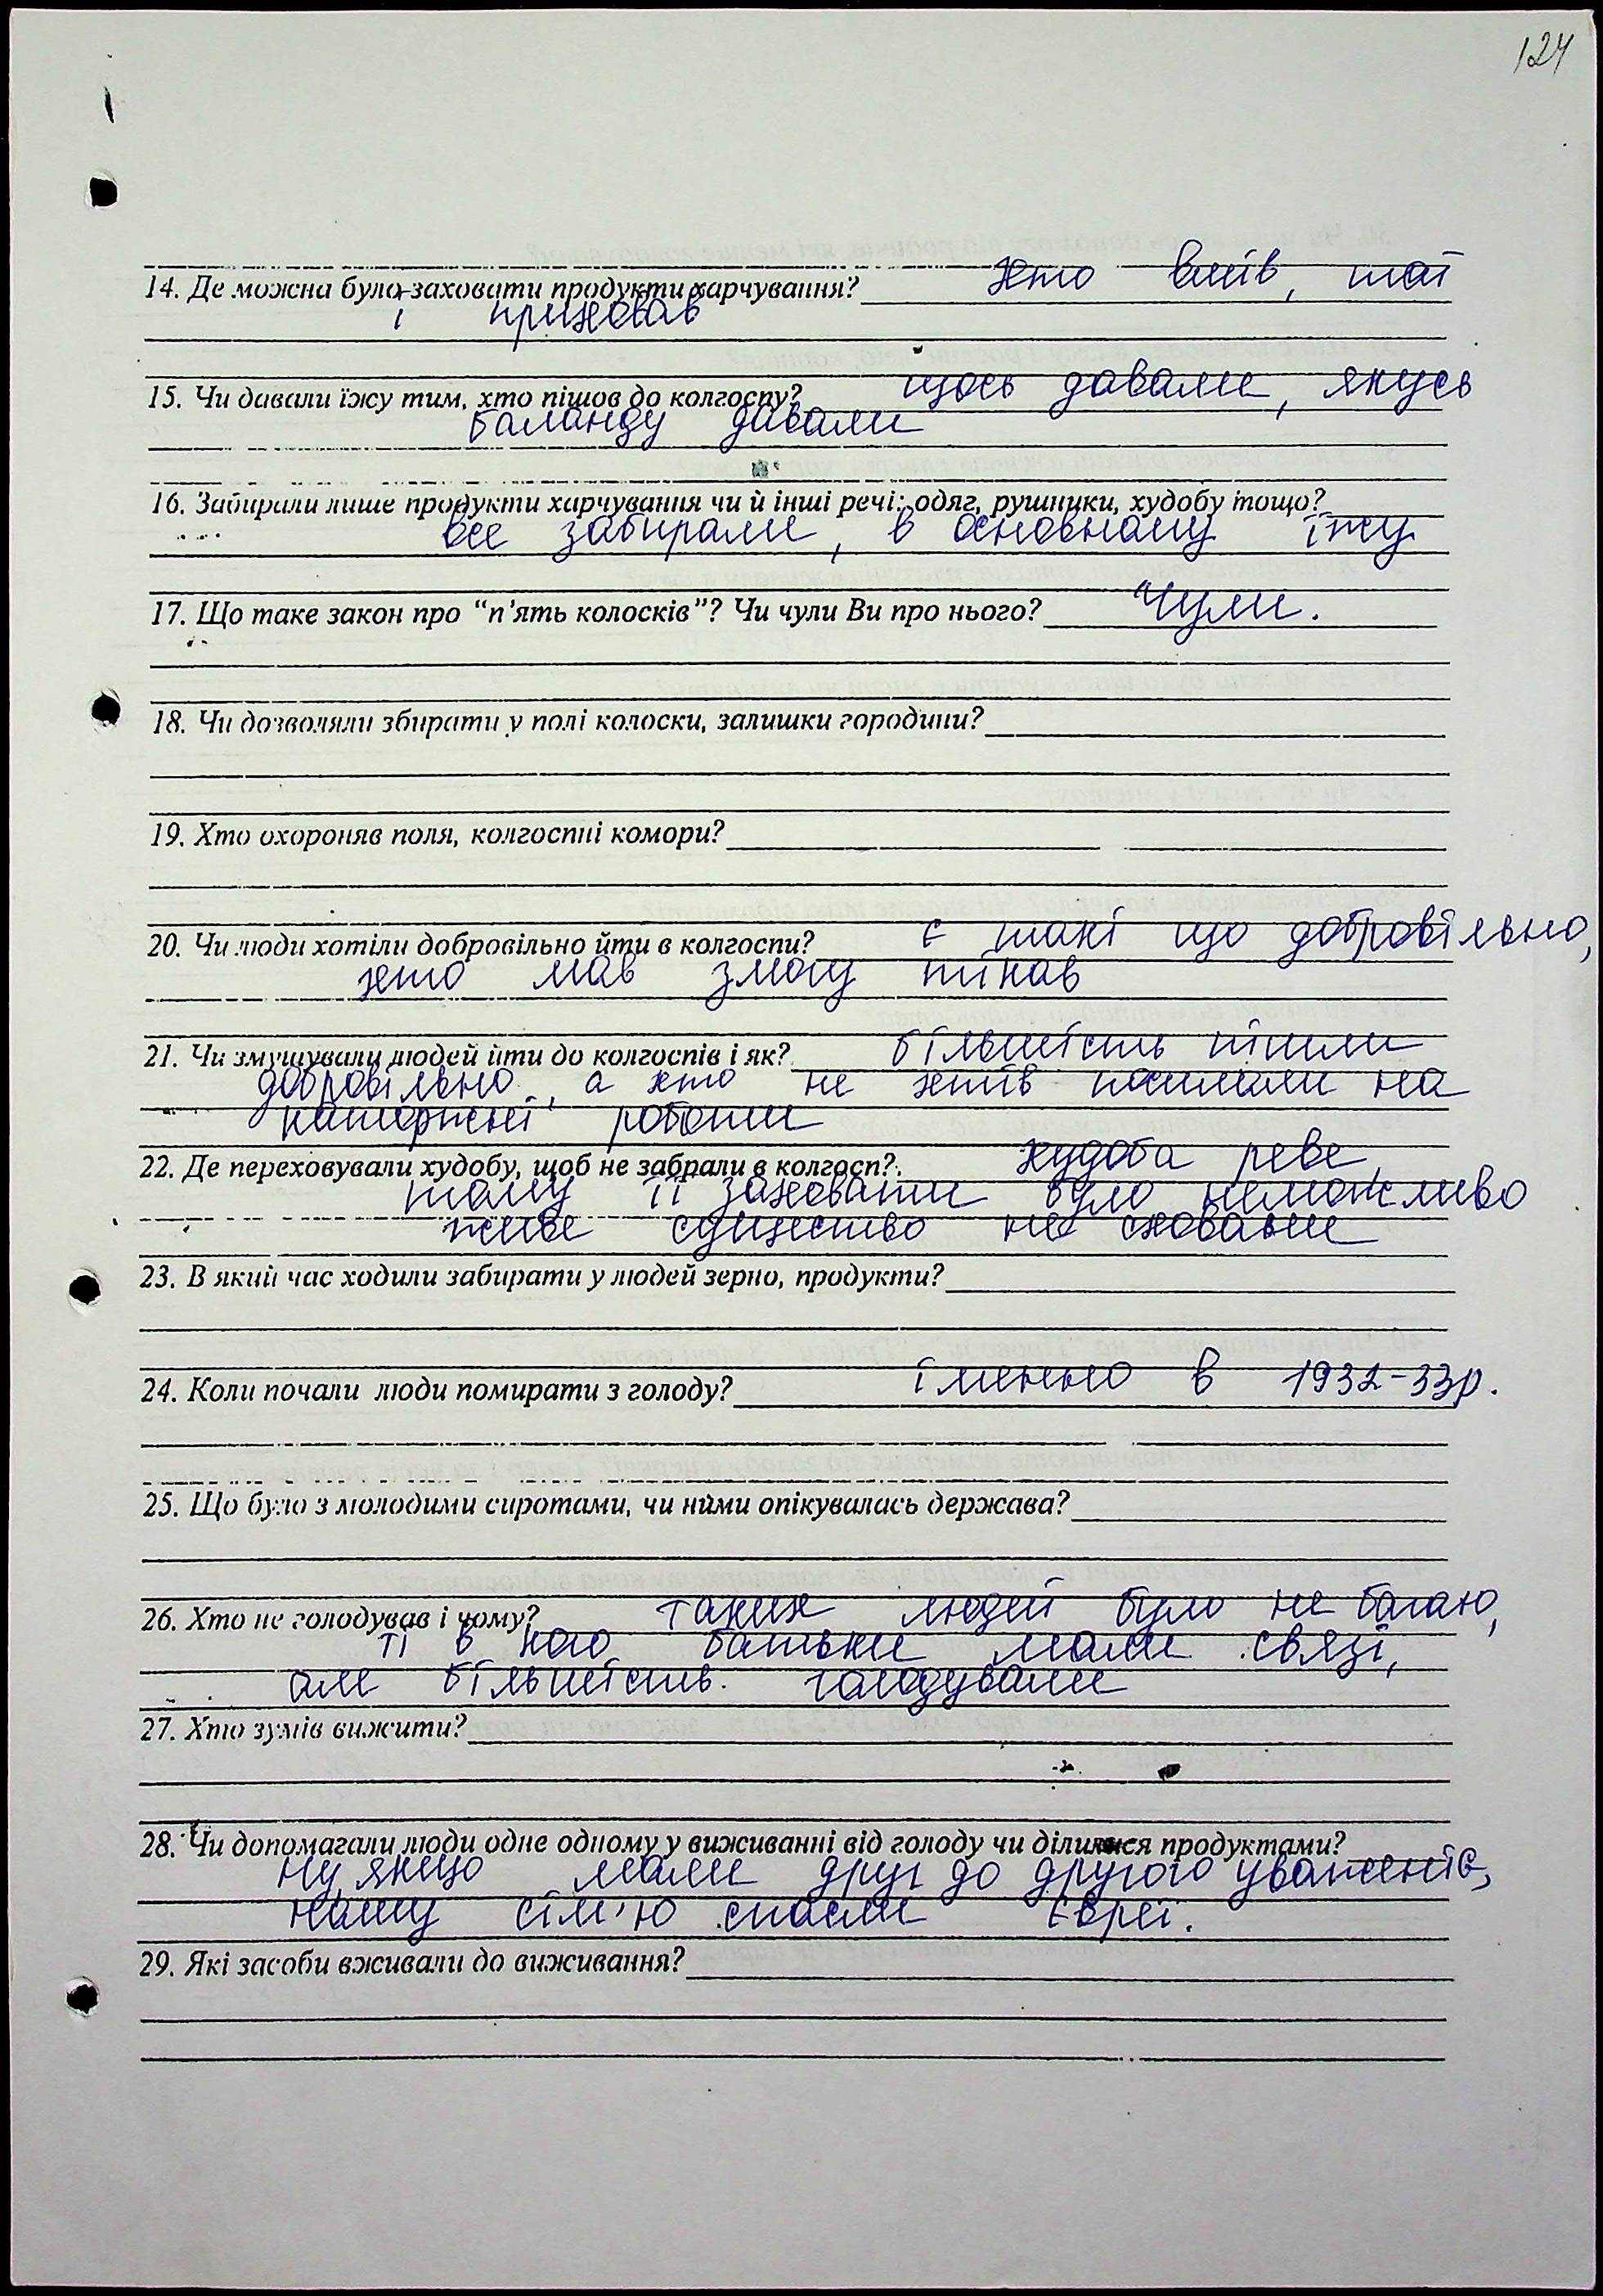 124
14. Де можна було заховати продукти харчування? хто вмів, той
і приховав
15. Чи давали їжу тим, хто пішов до колгоспу? щось давали, якусь
баланду давали
16. Забирали лише продукти харчування чи й інші речі: одяг, рушники, худобу тощо?
все забирали, в основному їжу
17. Що таке закон про “п’ять колосків”? Чи чули Ви про нього? Чули.
18. Чи дозволяли збирати у полі колоски, залишки городини?
19. Хто охороняв поля, колгоспні комори?
20. Чи люди хотіли добровільно йти в колгоспи? є такі що добровільно,
хто мав змогу тікав
21. Чи змушували людей йти до колгоспів і як? більшість пішли
добровільно, а хто не хотів посилали на
каторжні роботи
22. Де переховували худобу, щоб не забрали в колгосп? худоба реве,
тому її заховати було неможливо
живе существо не сховаєш
23. В який час ходили забирати у людей зерно, продукти?
24. Коли почали люди помирати з голоду? іменно в 1932-33р.
25. Що було з молодими сиротами, чи ними опікувалась держава?
26. Хто не голодував і чому? таких людей було не багато,
ті в кого батьки мали связі,
але більшість голодували
27. Хто зумів вижити?
28. Чи допомагали люди одне одному у виживанні від голоду чи ділилися продуктами?
Ну, якщо мали друг до другого уваженіє,
нашу сім'ю спасли євреї.
29. Які засоби вживали до виживання?